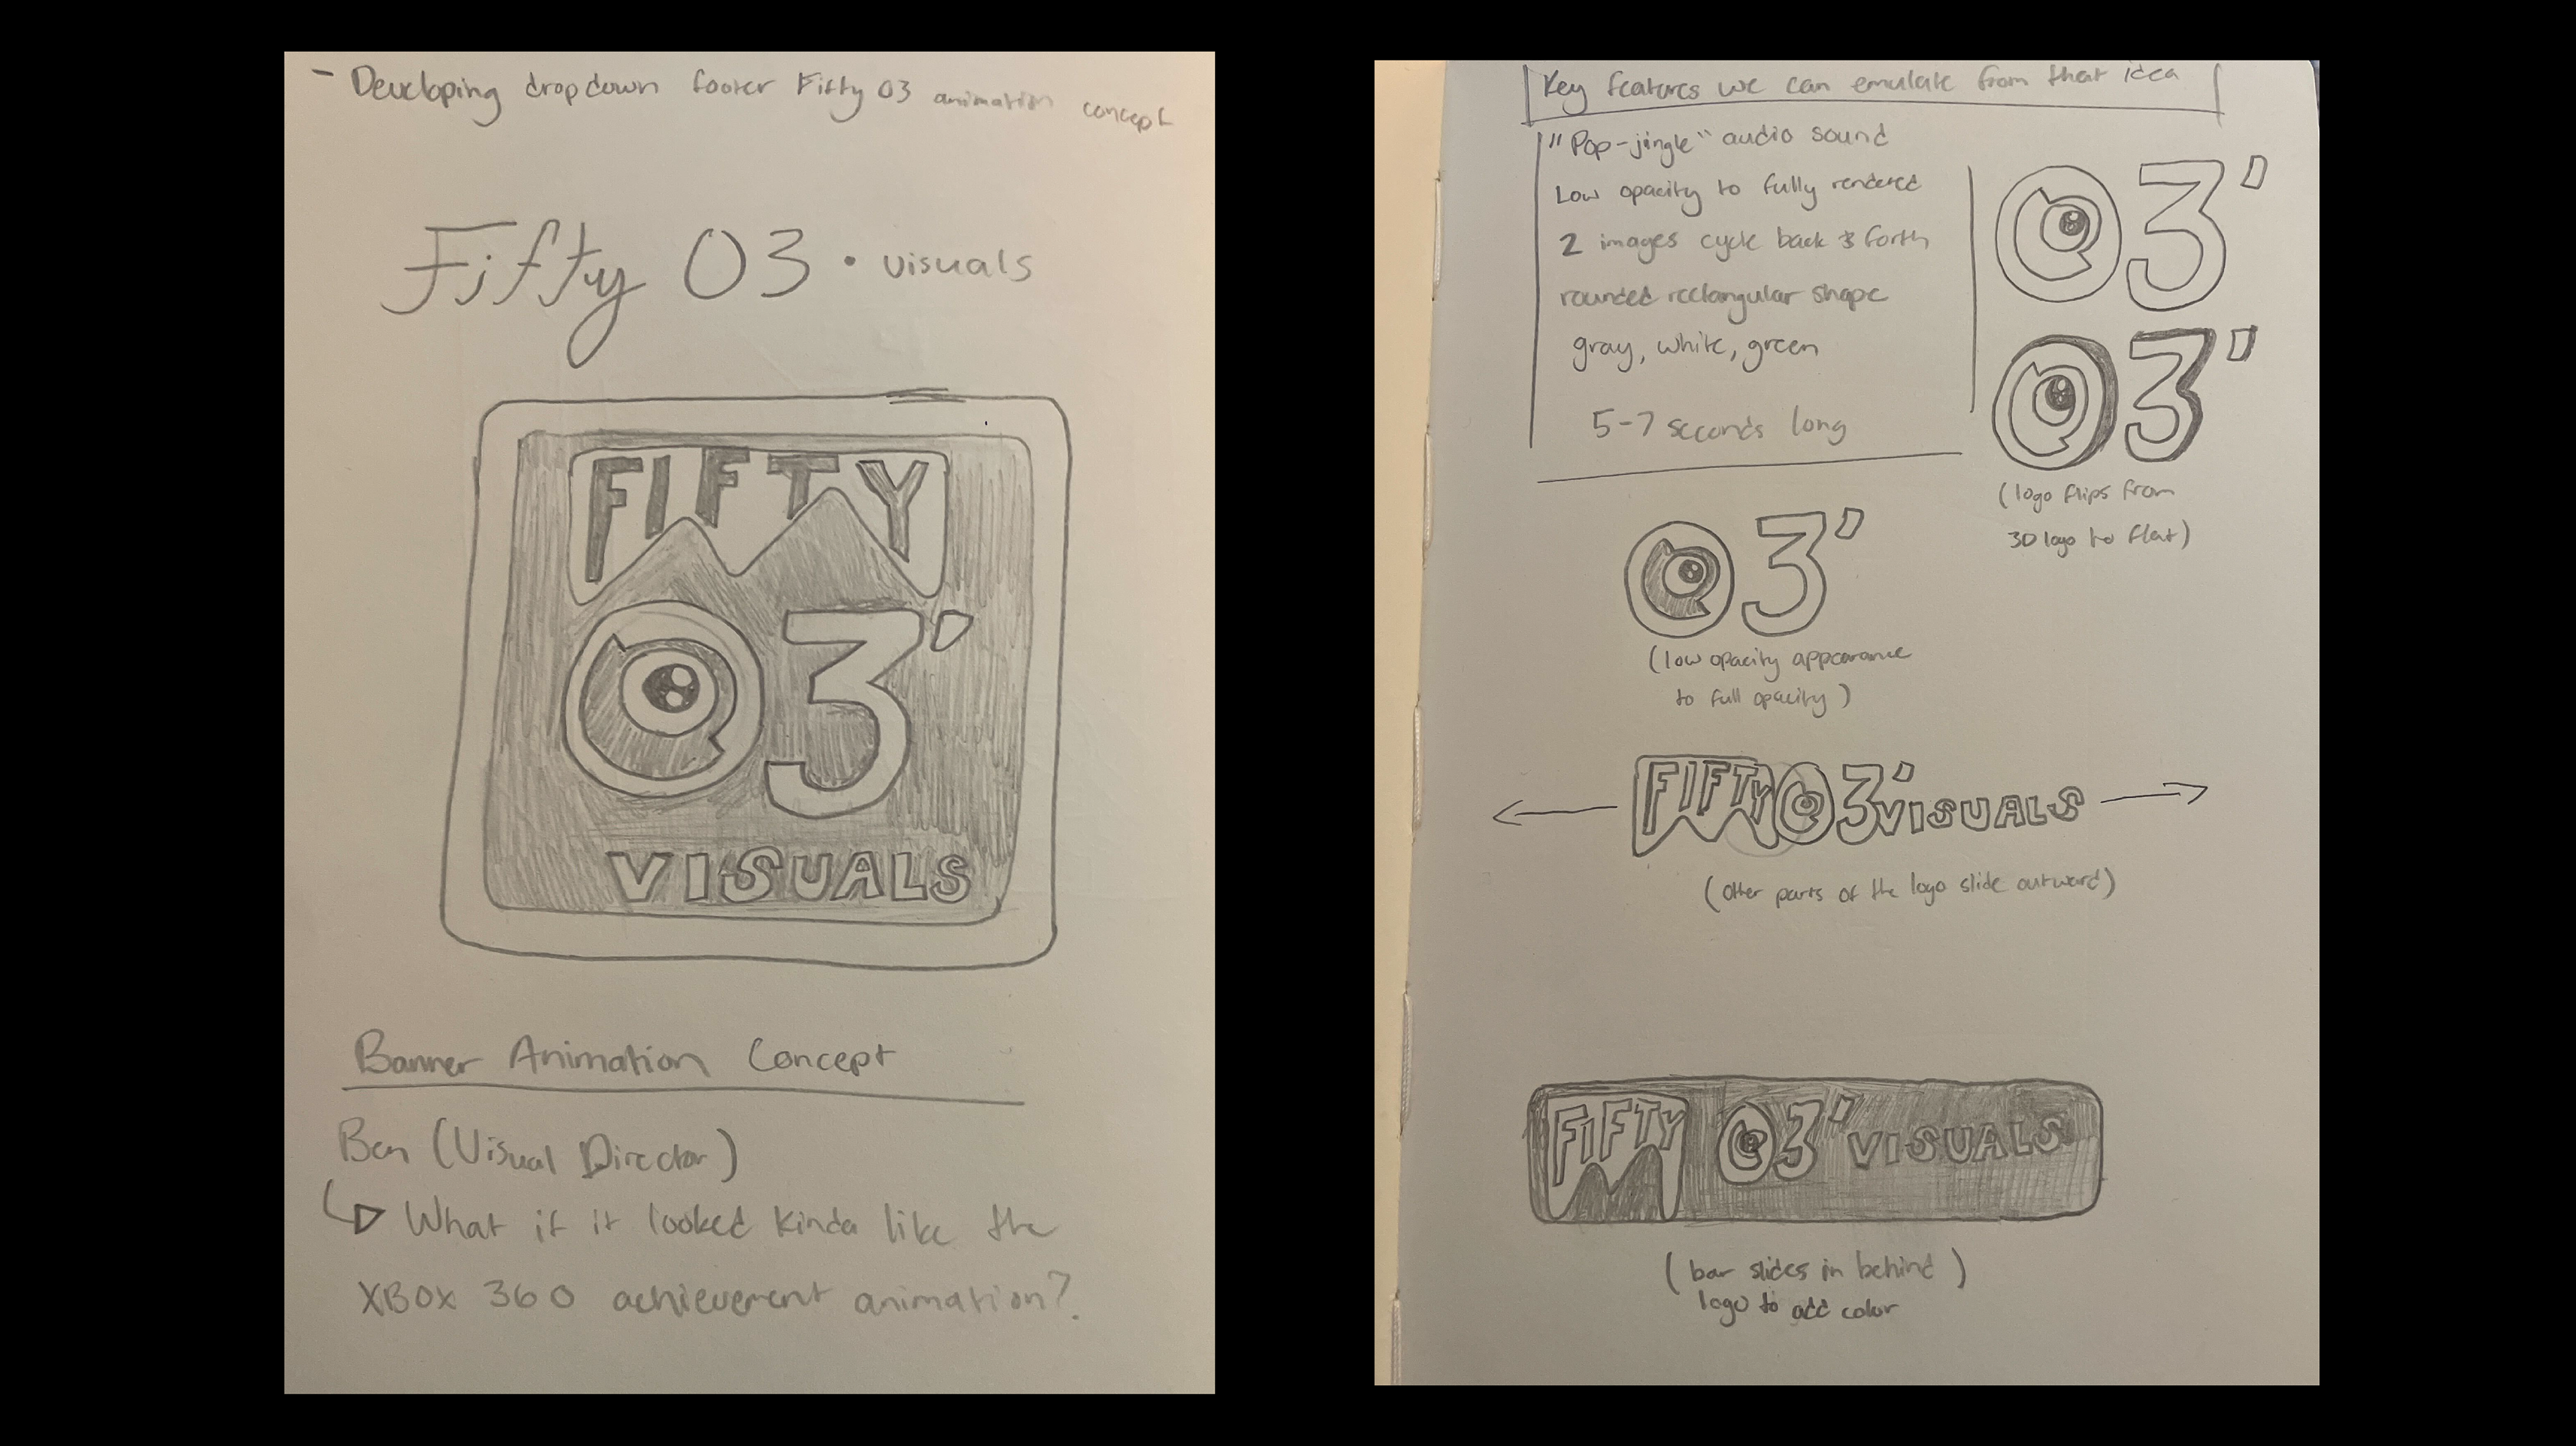 - Developing dropdown footer Fifty 03 animation concept
Fifty 03 • visuals
FIFTY
03'
VISUALS
Banner Animation Concept
Ben (Visual Director)
What if it looked kinda like the
XBOX 360 achievement animation?
Key features we can emulate from that idea
"Pop-jingle" audio sound
Low opacity to fully rendered
2 images cycle back & forth
rounded rectangular shape
gray, white, green
5-7 seconds long
03'
03'
(logo flips from
3D logo to flat)
03'
(low opacity appearance
to full opacity)
FIFTY 03' VISUALS
(other parts of the logo slide outward)
FIFTY 03' VISUALS
(bar slides in behind)
logo to add color